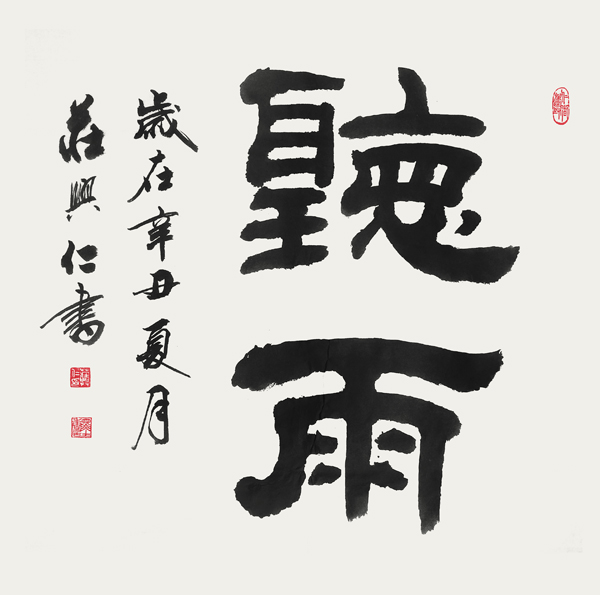 聽雨
歲在辛丑夏月
莊興仁書